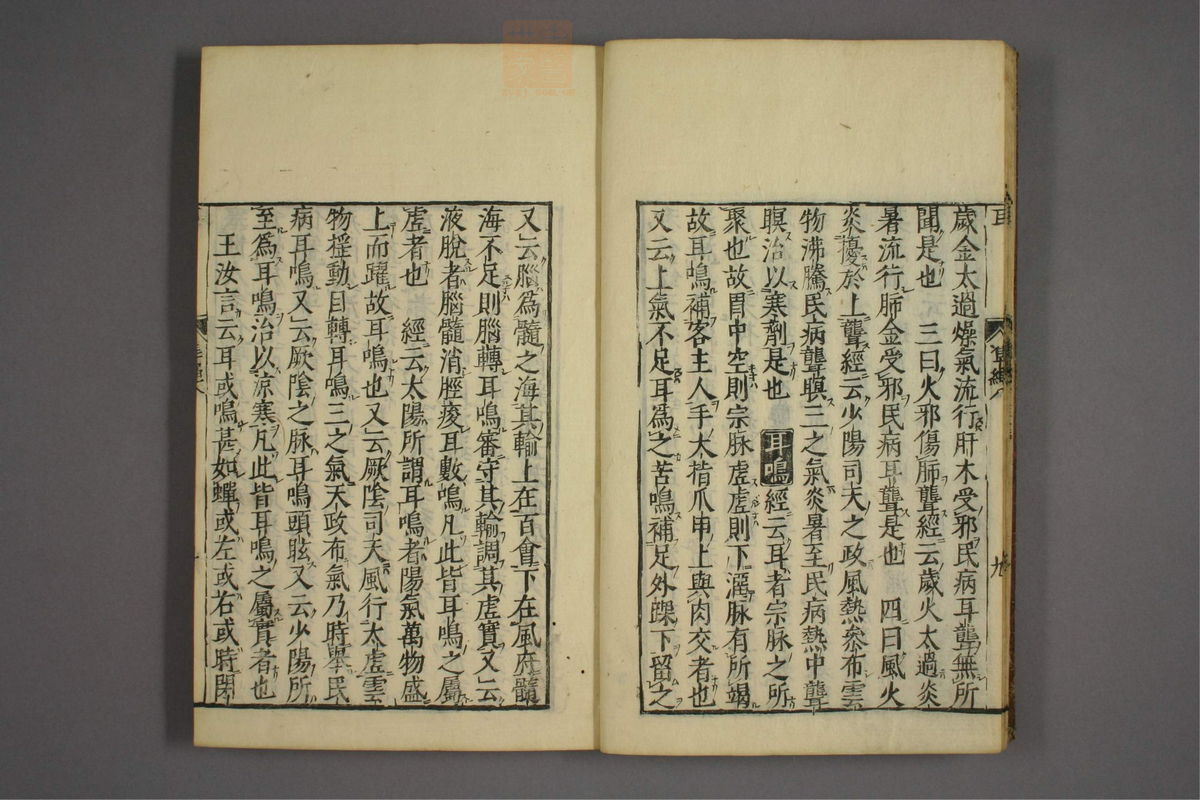 歲金太過燥氣流行肝木受邪民病耳聾無所
聞是也　三曰火邪傷肺聾經云歲火太過炎
暑流行肺金受邪民病耳聾是也　四曰風火
炎擾於上聾經云少陽司天之政風熱參布雲
物沸騰民病聾瞑三之氣炎暑至民病熱中聾
瞑治以寒劑是也　耳鳴經云耳者宗脉之所
聚也故胃中空則宗脉虛虛則下溜脉有所竭
故耳鳴補客主人手大指爪甲上與肉交者也
又云上氣不足耳爲之苦鳴補足外踝下留之
九
又云腦爲髓之海其輸上在百會下在風府髓
海不足則腦轉耳鳴審守其輸調其虛實又云
液脫者腦髓消脛痠耳數鳴凡此皆耳鳴之屬
虛者也　經云太陽所謂耳鳴者陽氣萬物盛
上而躍故耳鳴也又云厥陰司天風行太虛雲
物搖動目轉耳鳴三之氣天政布氣乃時舉民
病耳鳴又云厥陰之脉耳鳴頭眩又云少陽所
至爲耳鳴治以涼寒凡此皆耳鳴之屬實者也
王汝言云耳或鳴甚如蟬或左或右或時閉